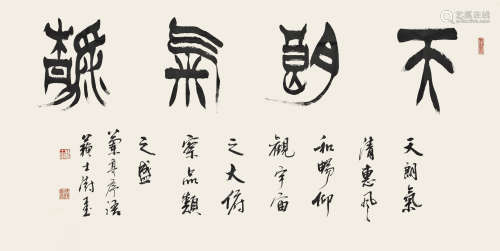 天朗氣
天朗氣
清惠風
和暢仰
觀宇宙
之大俯
察品類
之盛
蘭亭序語
蘇士澍書